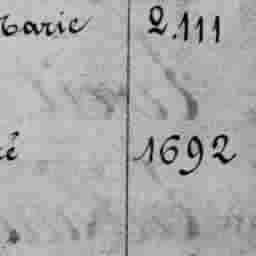 Marie 2.111
1692